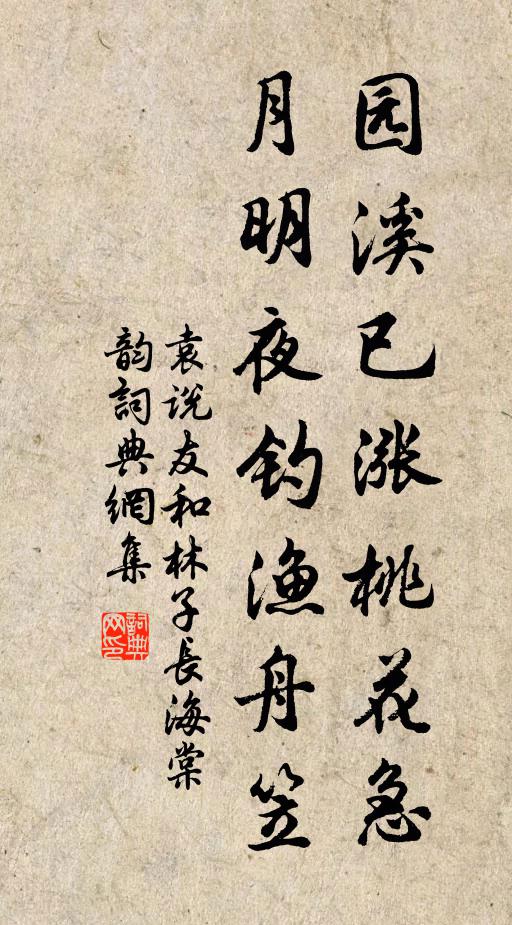 园溪已涨桃花急
月明夜钓渔舟笠
袁说友和林子長海棠
韵詞典網集
詞典
网印